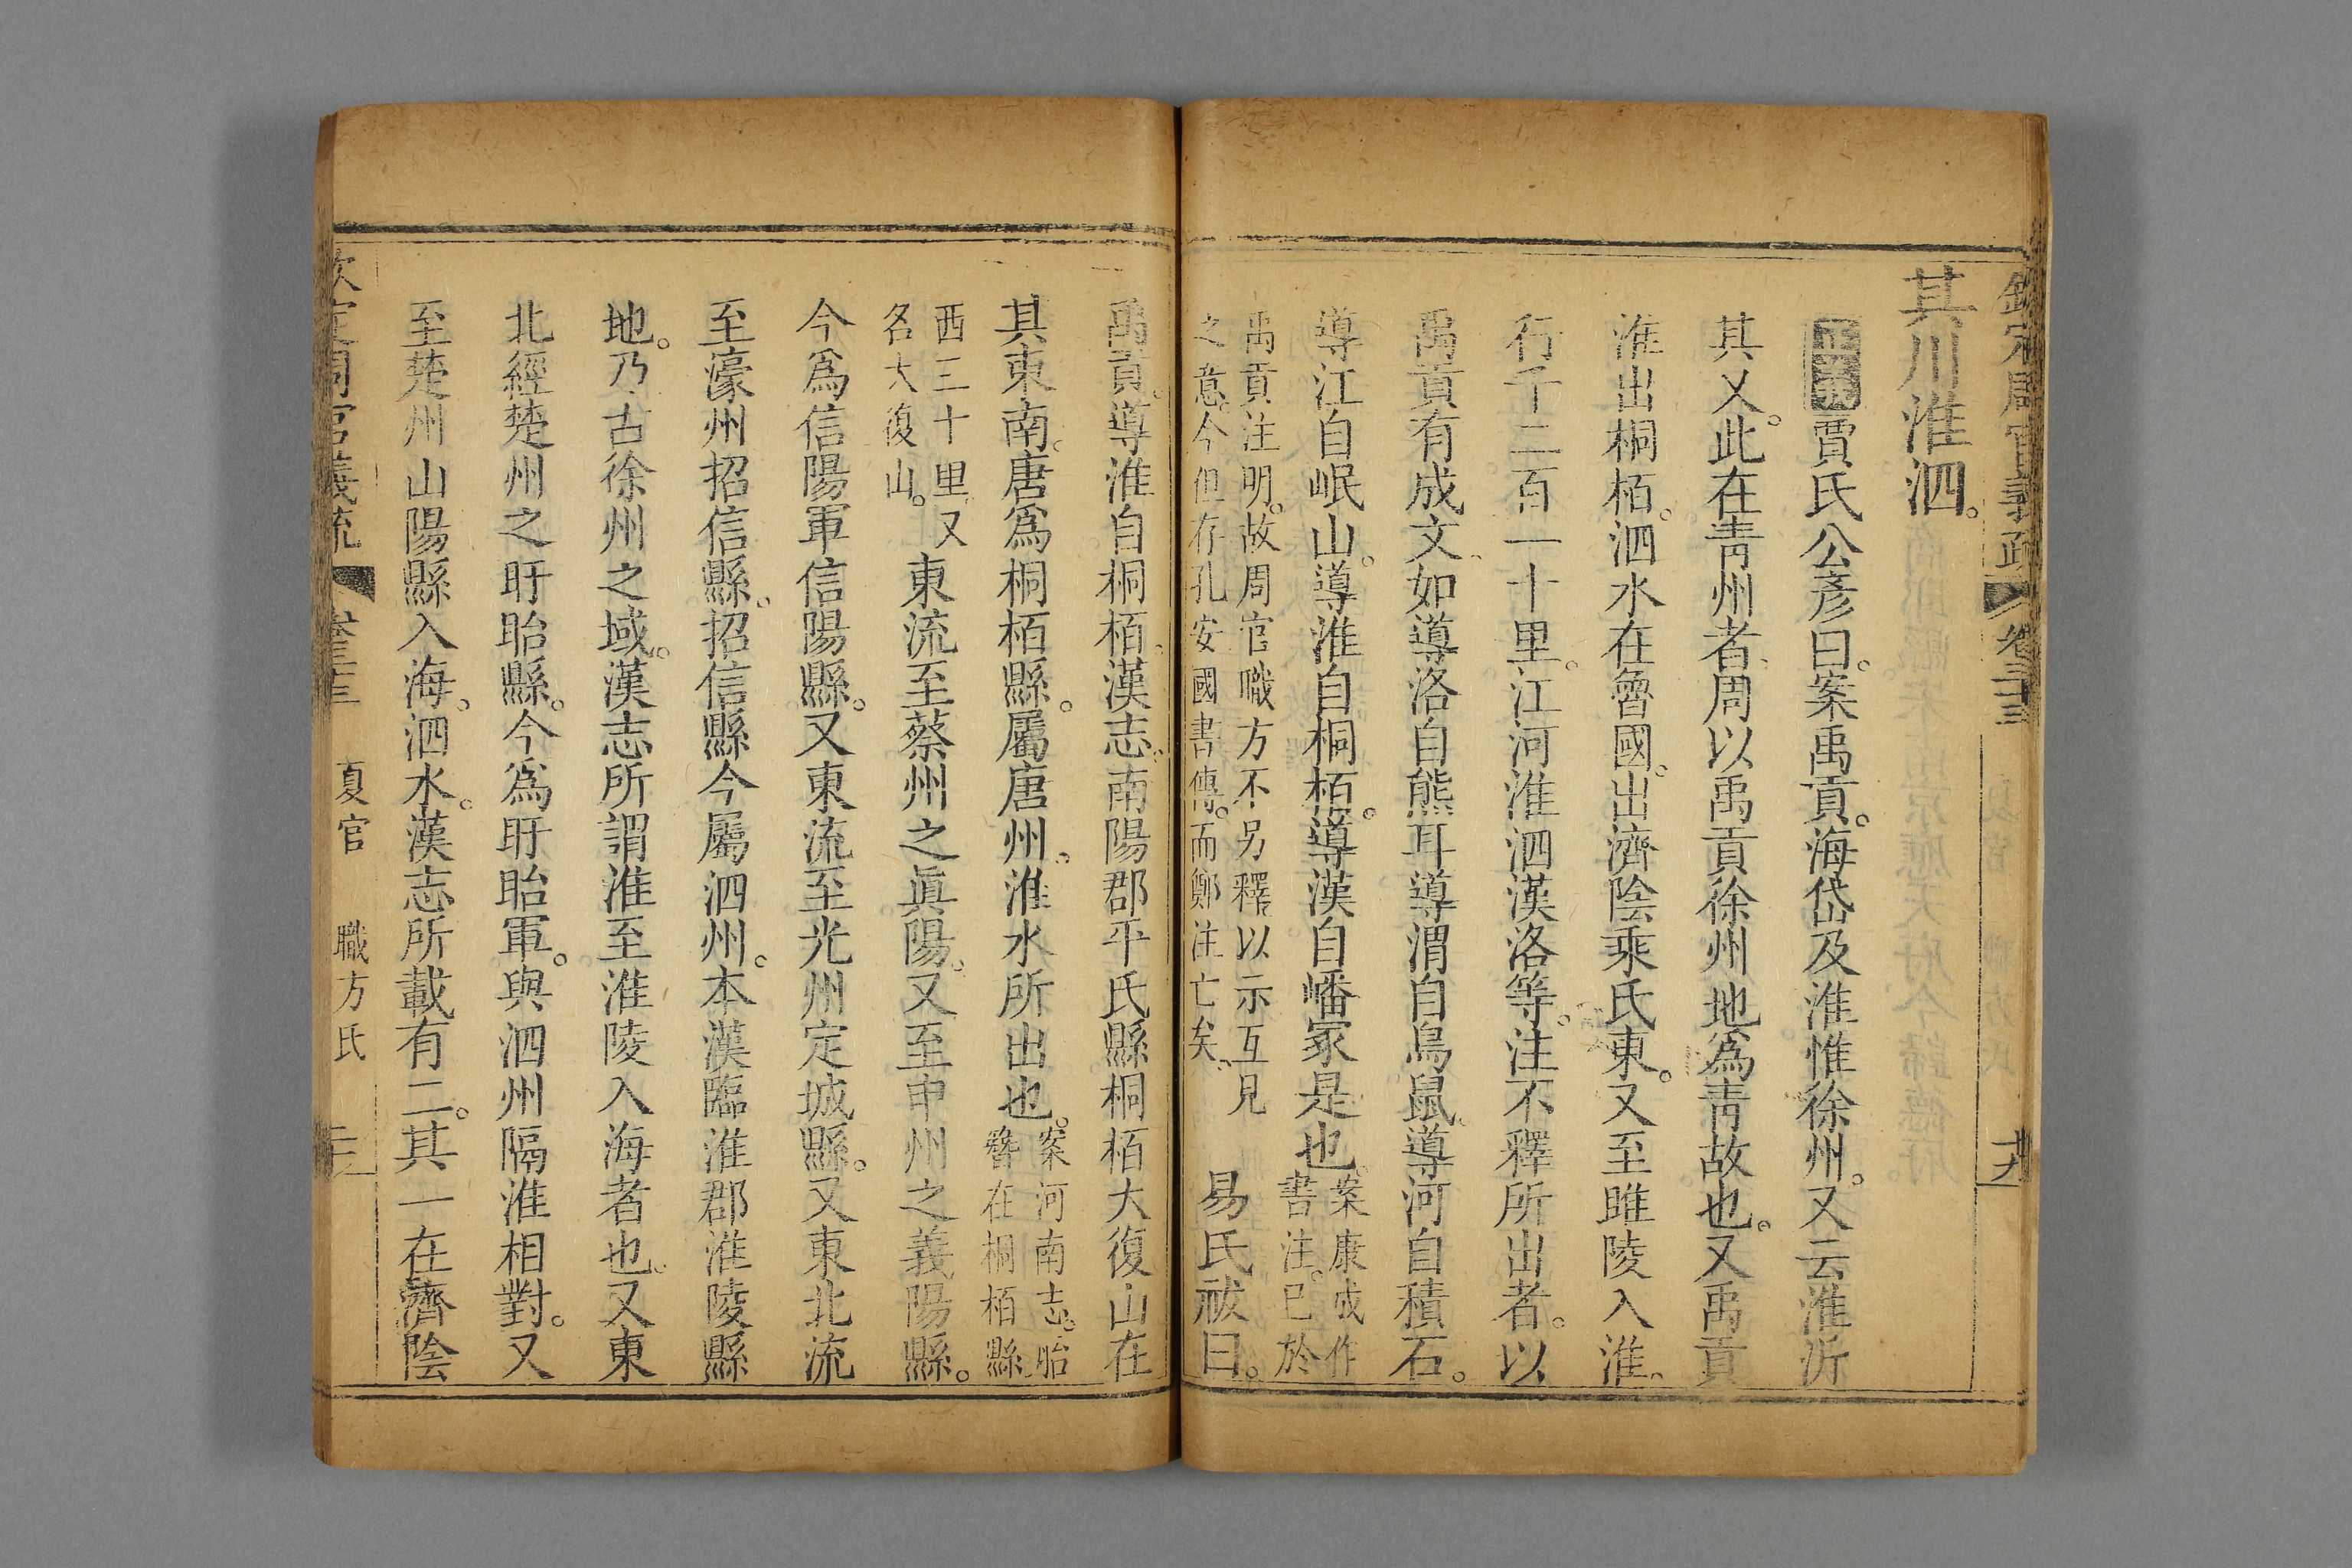 欽定周官義疏 卷三十三 十九
其川淮泗。
正義賈氏公彥曰。案禹貢。海岱及淮惟徐州。又云淮沂
其乂。此在靑州者、周以禹貢徐州地爲靑故也。又禹貢
淮出桐栢。泗水在魯國。出濟陰乘氏東。又至睢陵入淮、
行千二百一十里。江河淮泗漢洛等。注不釋所出者。以
禹貢有成文、如導洛自熊耳導渭自鳥鼠、導河自積石。
導江自岷山。導淮自桐栢。導漢自嶓冢是也。案康成作
書注。已於
禹貢注明。故周官職方不另釋以示互見
之意。今但存孔安國書傳。而鄭注亡矣、 易氏祓曰。
禹貢。導淮自桐栢、漢志、南陽郡平氏縣桐栢大復山在
其東南。唐爲桐栢縣。屬唐州。淮水所出也。案河南志。胎
簪在桐栢縣
西三十里、又
名大復山。東流至蔡州之眞陽。又至申州之義陽縣。
今爲信陽軍信陽縣。又東流至光州定城縣。又東北流
至濠州招信縣。招信縣今屬泗州。本漢臨淮郡淮陵縣
地。乃古徐州之域。漢志所謂淮至淮陵入海者也。又東
北經楚州之盱眙縣。今爲盱眙軍。與泗州隔淮相對。又
至楚州山陽縣入海。泗水。漢志所載有二。其一在濟陰
欽定周官義疏 卷三十三 夏官 職方氏